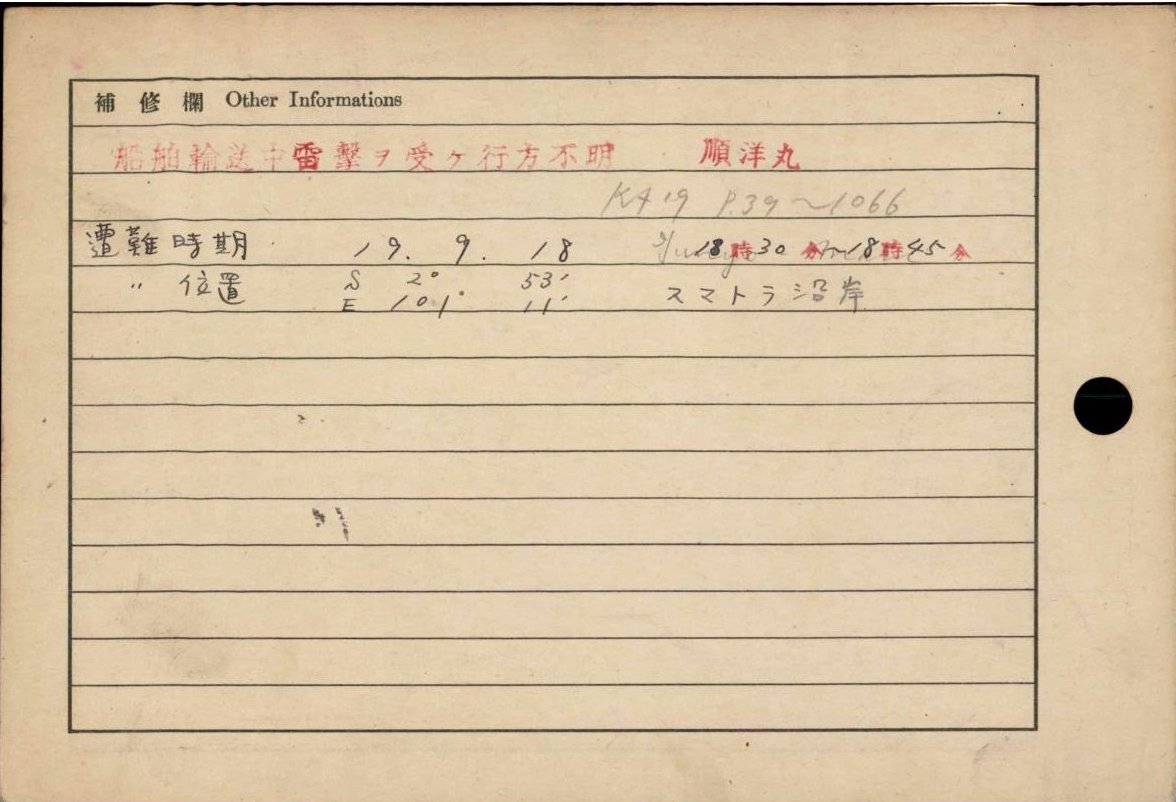 補修欄 Other Informations
船舶輸送中雷撃ヲ受ケ行方不明 順洋丸
KA 19 P.39～1066
遭難時期 19. 9. 18 18時30分 18時45分
〃 位置 S 2° 53′ スマトラ沿岸
E 101° 11′